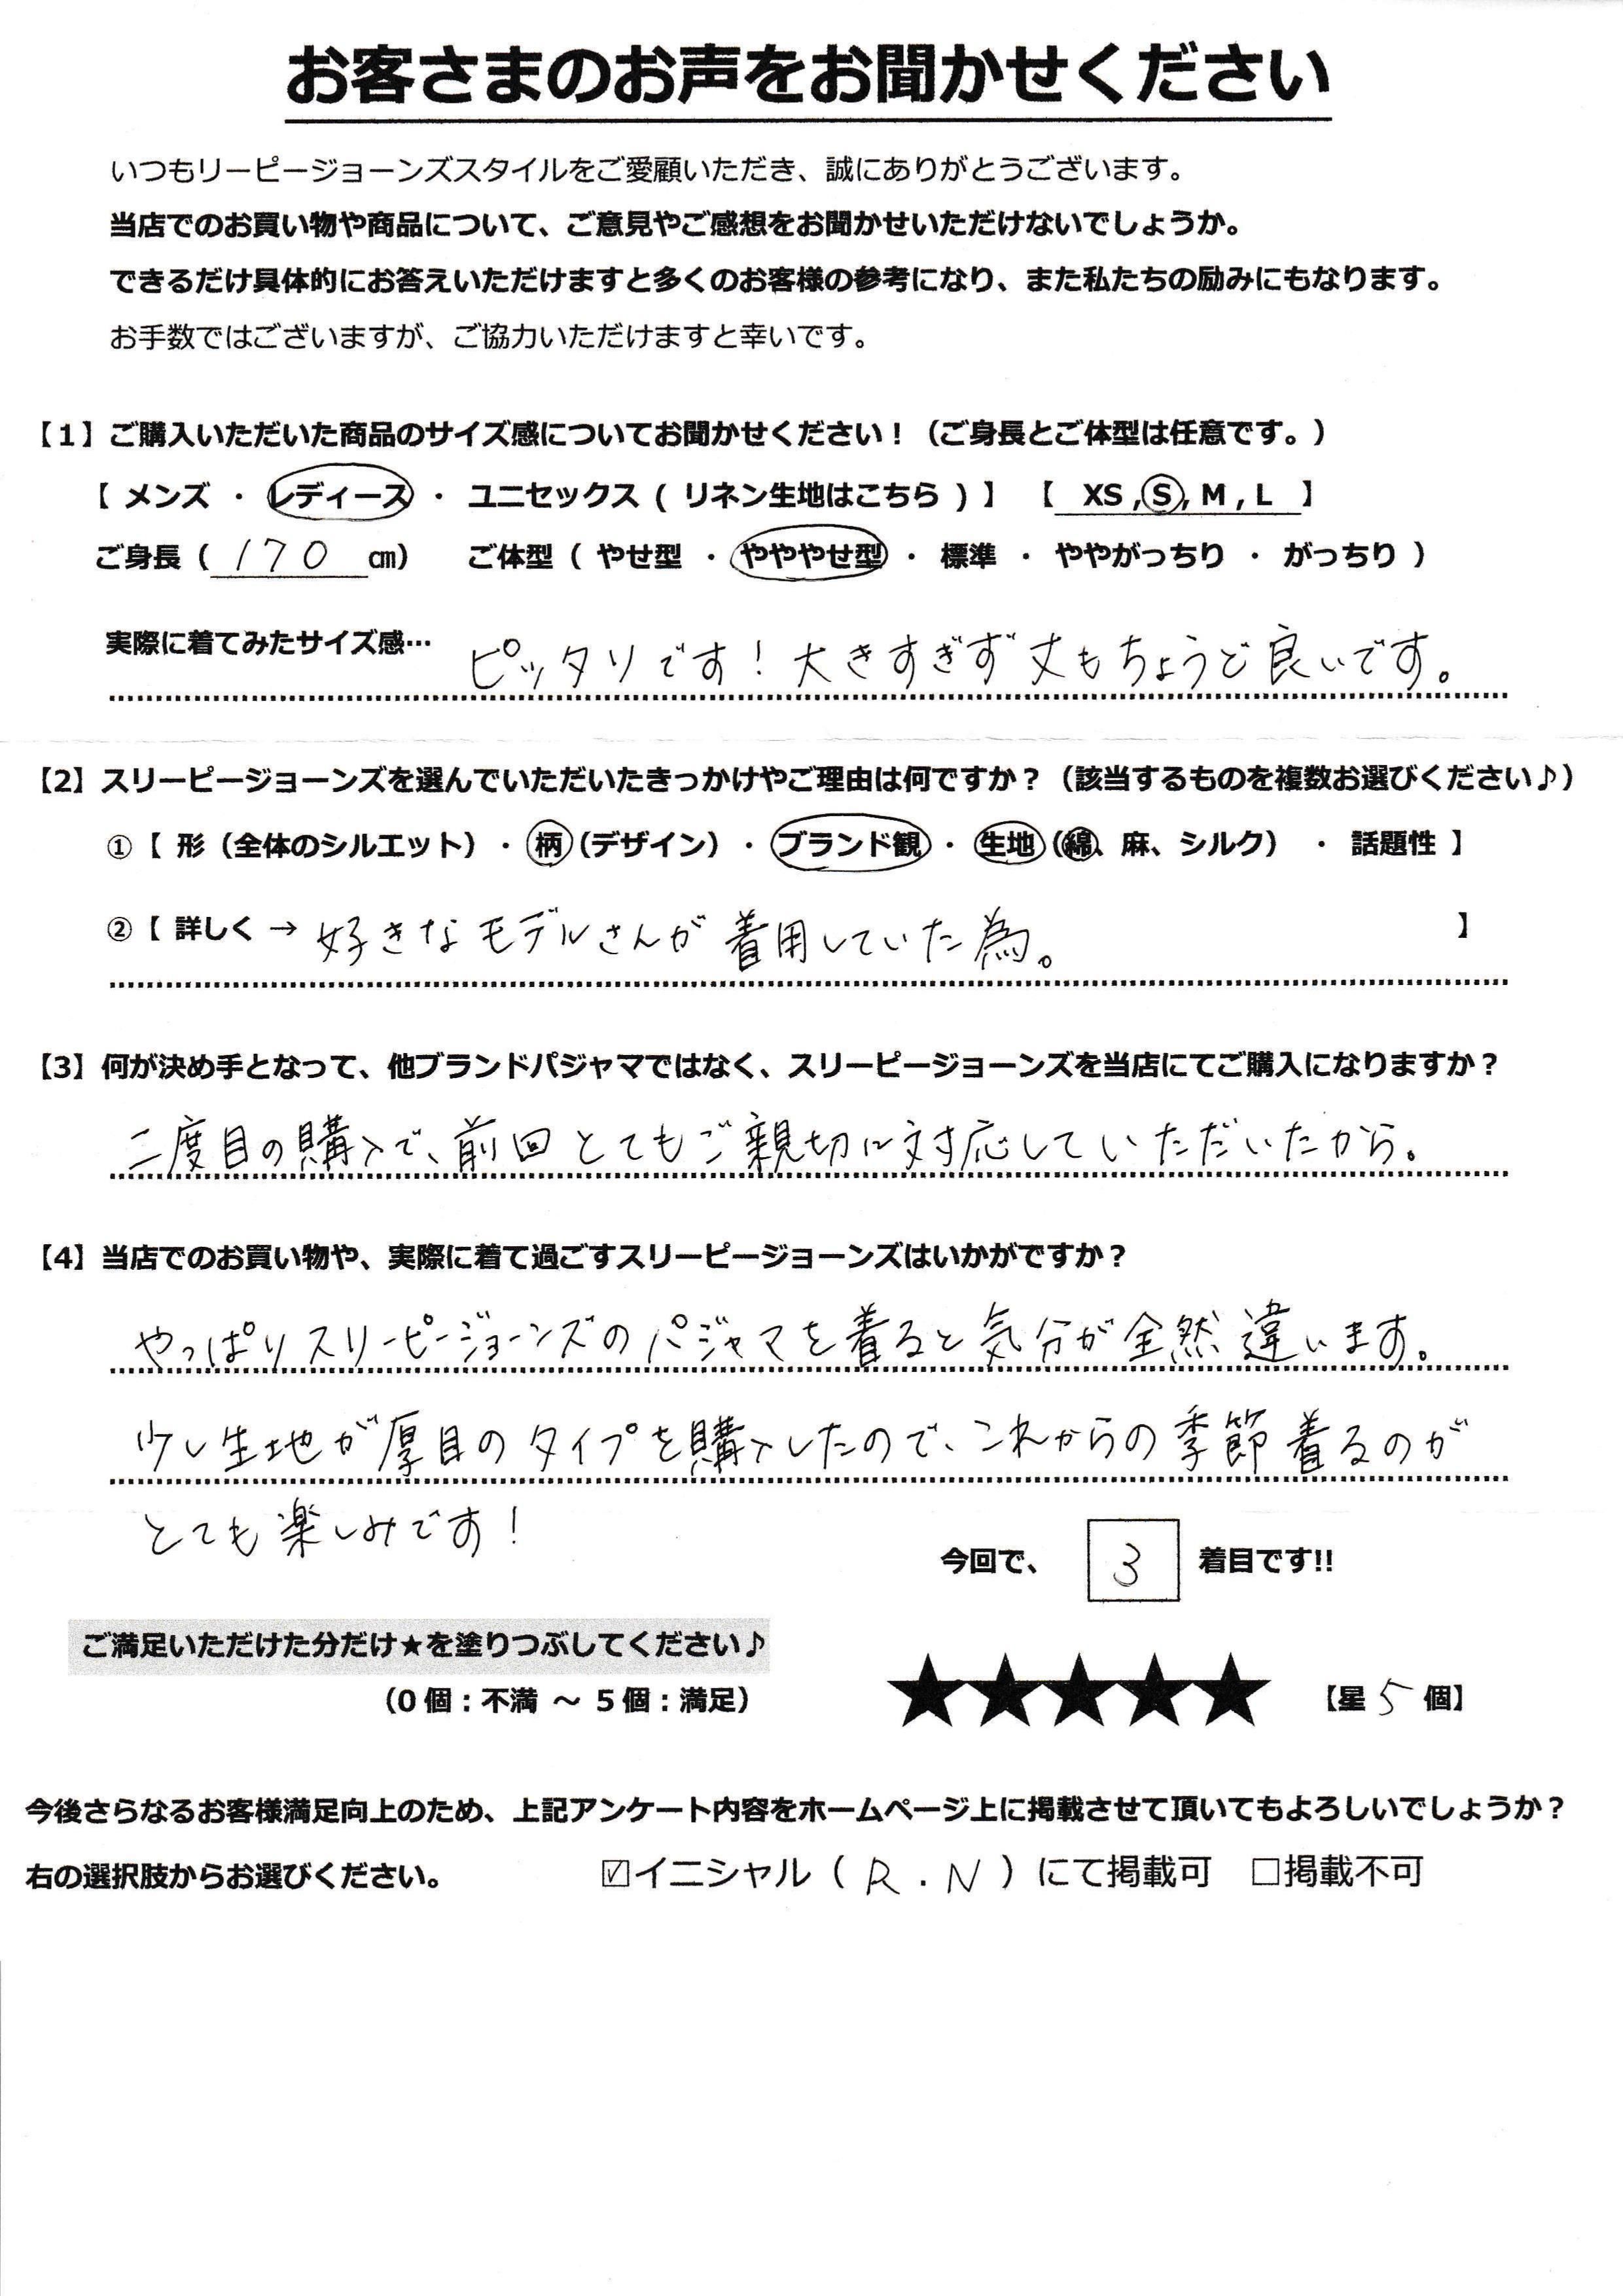 お客さまのお声をお聞かせください
いつもリーピージョーンズスタイルをご愛顧いただき、誠にありがとうございます。
当店でのお買い物や商品について、ご意見やご感想をお聞かせいただけないでしょうか。
できるだけ具体的にお答えいただけますと多くのお客様の参考になり、また私たちの励みにもなります。
お手数ではございますが、ご協力いただけますと幸いです。
【1】ご購入いただいた商品のサイズ感についてお聞かせください！（ご身長とご体型は任意です。）
【 メンズ ・ レディース ・ ユニセックス ( リネン生地はこちら ) 】 【 XS , S , M , L 】
ご身長（ 170 ㎝） ご体型（ やせ型 ・ やややせ型 ・ 標準 ・ ややがっちり ・ がっちり ）
実際に着てみたサイズ感… ピッタリです！大きすぎず丈もちょうど良いです。
【2】スリーピージョーンズを選んでいただいたきっかけやご理由は何ですか？（該当するものを複数お選びください♪）
①【 形（全体のシルエット）・ 柄（デザイン） ・ ブランド観 ・ 生地（綿、麻、シルク） ・ 話題性 】
②【 詳しく → 好きなモデルさんが着用していた為。 】
【3】何が決め手となって、他ブランドパジャマではなく、スリーピージョーンズを当店にてご購入になりますか？
二度目の購入で、前回とてもご親切に対応していただいたから。
【4】当店でのお買い物や、実際に着て過ごすスリーピージョーンズはいかがですか？
やっぱりスリーピージョーンズのパジャマを着ると気分が全然違います。
少し生地が厚目のタイプを購入したので、これからの季節着るのが
とても楽しみです！
今回で、 3 着目です!!
ご満足いただけた分だけ★を塗りつぶしてください♪
（0 個：不満 ～ 5 個：満足） ★★★★★ 【星 5 個】
今後さらなるお客様満足向上のため、上記アンケート内容をホームページ上に掲載させて頂いてもよろしいでしょうか？
右の選択肢からお選びください。 ☑イニシャル（ R . N ）にて掲載可 □掲載不可